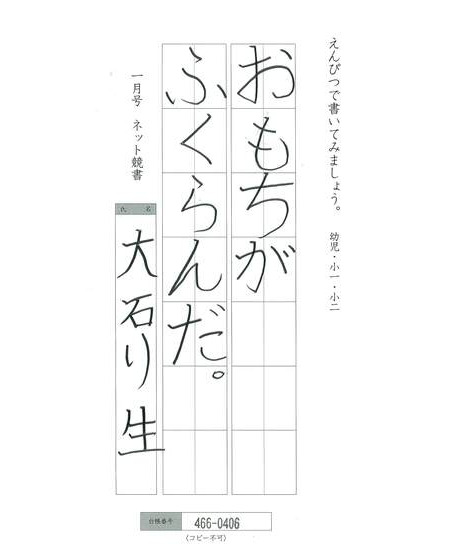 えんぴつで書いてみましょう。 幼児・小一・小二
おもちが
ふくらんだ。
一月号 ネット競書
氏 名
大石り生
台帳番号 466-0406
(コピー不可)